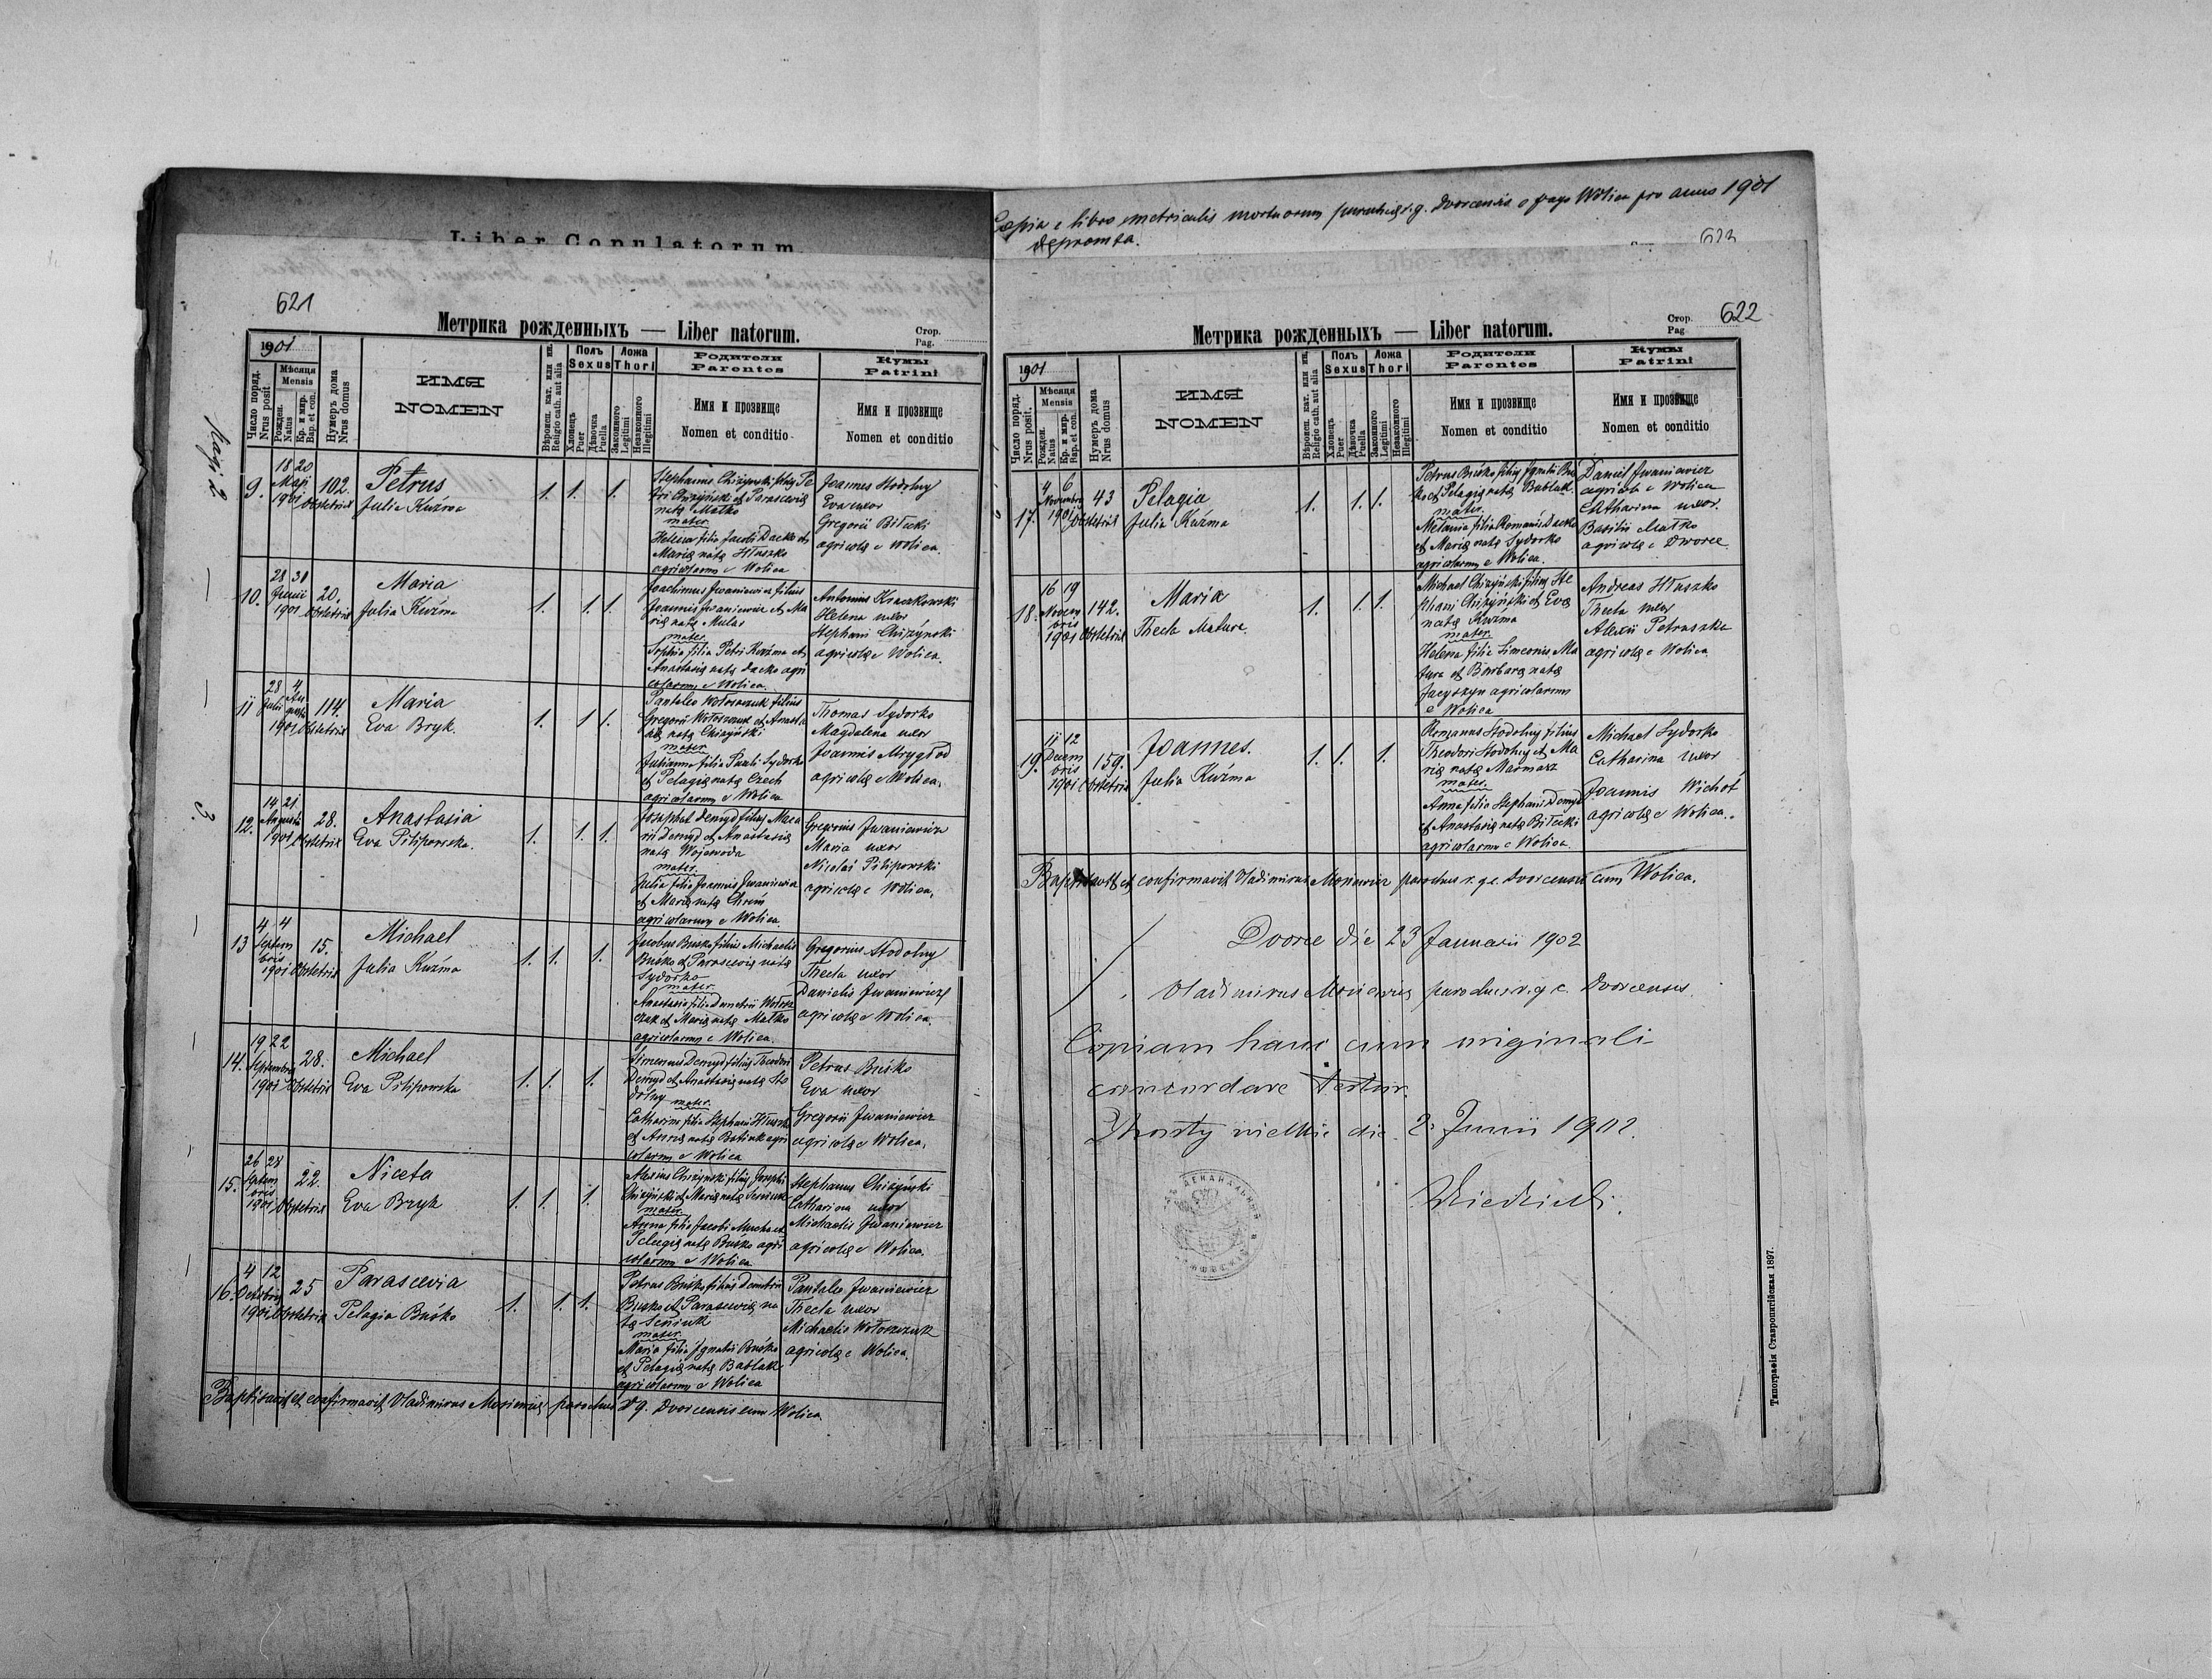 Liber Copulatorum.
621
Метрика рожденныхъ — Liber natorum.
Стор.
Pag.
1901
Число поряд.
Nrus posit
Мѣсяця
Mensis
Рожден.
Natus
Кр. и мир.
Bap. et con.
Нумеръ дома
Nrus domus
ИМЯ
NOMEN
Вѣроисп. кат. или ин.
Religio cath. aut alia
Полъ
Sexus
Хлопецъ
Puer
Дѣвочка
Puella
Ложа
Thori
Законного
Legitimi
Незаконного
Illegitimi
Родители
Parentes
Имя и прозвище
Nomen et conditio
Кумы
Patrini
Имя и прозвище
Nomen et conditio
Maji 2.
3.
9.
18 20
Maji
1901
102.
Obstetrix
Petrus
Julia Kuźma
1. 1. 1.
Stephanus Chiżyński filius Pe
tri Chiżyński et Parascevię
natę Matko
mater
Helena filia Jacobi Dacko et
Marię natę Hłuszko
agricolarum e Wolica
Joannes Stodolny
Eva uxor
Gregorii Biłecki
agricolę e Wolica.
10.
28 30
Junii
1901
20.
Obstetrix
Maria
Julia Kuźma
1. 1. 1.
Joachimus Iwaniewicz filius
Joannis Iwaniewicz et Ma
rię natę Mular
mater
Sophia filia Petri Kuźma et
Anastasię natę Dacko agri
colarum e Wolica.
Antonius Kraczkowski
Helena uxor
Stephani Chiżyński
agricolę e Wolica.
11
28 4
Julii Augusti
1901
114.
Obstetrix
Maria
Eva Bryk.
1. 1 1.
Pantaleo Wołoszczuk filius
Gregorii Wołoszczuk et Anasta
się natę Chiżyński
mater
Julianna filia Pauli Sydorko
et Pelagię natę Czech
agricolarum e Wolica
Thomas Sydorko
Magdalena uxor
Joannis Mrygłod
agricolę e Wolica.
12.
14 21
Augusti
1901
28.
Obstetrix
Anastasia
Eva Pilipowska.
1. 1. 1.
Josaphat Demyd filius Maca
rii Demyd et Anastasię
natę Wojewoda
mater.
Julia filia Joannis Iwaniewicz
et Marię natę Chrin
agricolarum e Wolica.
Gregorius Iwaniewicz
Maria uxor
Nicolai Pilipowski
agricolę e Wolica.
13
4 4
Septem
bris
1901
15.
Obstetrix
Michael
Julia Kuźma
1. 1. 1.
Jacobus Buśko filius Michaelis
Buśko et Parascevię natę
Sydorko
mater.
Anastasia filia Demetrii Wołosz
czuk et Marię natę Matko
agricolarum e Wolica.
Gregorius Stodolny
Thecla uxor
Danielis Iwaniewicz
agricolę e Wolica.
14.
19 22
Septembris
1901
28.
Obstetrix
Michael
Eva Pilipowska
1. 1. 1.
Simeonus Demyd filius Theodori
Demyd et Anastasię natę Sto
dolny mater.
Catharina filia Stephani Hłuszko
et Annę natę Botiuk agri
colarum e Wolica
Petrus Buśko
Eva uxor
Gregorii Iwaniewicz
agricolę e Wolica.
15.
26 28
Septem
bris
1901
22.
Obstetrix
Niceta
Eva Bryk
1. 1. 1.
Alexius Chiżyński filius Josephi
Chiżyński et Marię natę Seniuk
mater
Anna filia Jacobi Mucha et
Pelagię natę Buśko agri
colarum e Wolica
Stephanus Chiżyński
Catharina uxor
Michaelis Iwaniewicz
agricolę e Wolica.
16.
4 12
Octobris
1901
25
Obstetrix
Parascevia
Pelagia Buśko
1. 1. 1.
Petrus Buśko filius Demetrii
Buśko et Parascevię na
tę Seniuk
mater
Maria filia Ignatii Buśko
et Pelagię natę Bablak
agricolarum e Wolica
Pantaleo Iwaniewicz
Thecla uxor
Michaelis Wołoszczuk
agricolę e Wolica.
Baptisavit et confirmavit Vladimirus parochus r. g. Dvorcensis cum Wolica
Copia e libro metricalis mortuorum parochię r. g. Dvorcensis e pago Wolica pro anno 1901
depromta.
623
622
Метрика рожденныхъ — Liber natorum.
Стор.
Pag
1901
Число поряд.
Nrus posit.
Мѣсяця
Mensis
Рожден.
Natus
Кр. и мир.
Bap. et con.
Нумеръ дома
Nrus domus
ИМЯ
NOMEN
Вѣроисп. кат. или ин.
Religio cath. aut alia
Полъ
Sexus
Хлопецъ
Puer
Дѣвочка
Puella
Ложа
Thori
Законного
Legitimi
Незаконного
Illegitimi
Родители
Parentes
Имя и прозвище
Nomen et conditio
Кумы
Patrini
Имя и прозвище
Nomen et conditio
17.
4 6
Novembris
1901
43
Obstetrix
Pelagia
Julia Kuźma
1. 1. 1.
Petrus Buśko filius Ignatii Buś
ko et Pelagię natę Bablak.
mater.
Melania filia Romani Dacko
et Marię natę Sydorko
agricolarum e Wolica.
Daniel Iwaniewicz
agricola e Wolica
Catharina uxor.
Basilii Matko
agricolę e Dworce.
18.
16 19
Novem
bris
1901
142.
Obstetrix
Maria
Thecla Matura.
1. 1. 1.
Michael Chiżyński filius Ste
phani Chiżyński et Evę
natę Kuźma
mater.
Helena filia Simeonis Ma
tura et Barbarę natę
Jacyszyn agricolarum
e Wolica
Andreas Hłuszko
Thecla uxor
Alexii Petruszka
agricolę e Wolica.
19.
11 12
Decem
bris
1901
159.
Obstetrix
Joannes.
Julia Kuźma
1. 1. 1.
Romanus Stodolny filius
Theodori Stodolny et Ma
rię natę Marmasz
mater.
Anna filia Stephani Demyd
et Anastasię natę Biłecki
agricolarum e Wolica.
Michael Sydorko
Catharina uxor
Joannis Wichot
agricolę e Wolica.
Baptisavit et confirmavit Vladimirus parochus r. g. c. Dvorcensis cum Wolica.
Dvorce die 23 Januarii 1902
Vladimirus parochus r. g. c. Dvorcensis.
Copiam hanc cum originali
concordare testor.
Mosty wielkie die 2. Junii 1902.
Типографія Ставропигійская 1897.